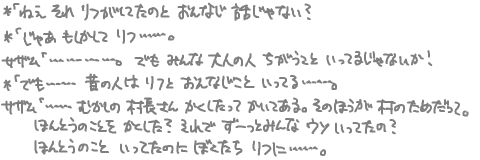 *「ねえ それ リフがしてたのと おんなじ 話じゃない?
*「じゃあ もしかして リフ……。
サザム「…………。 でも みんな 大人の人 ちがうこと いってるじゃないか!
*「でも…… 昔の人は リフと おんなじこと いってる……。
サザム「…… むかしの 村長さん かくしたって かいてある。そのほうが 村のためだって。
ほんとうのことを かくした? それで ずーっとみんな ウソ いってたの?
ほんとうのこと いってたのに ぼくたち リフに……。